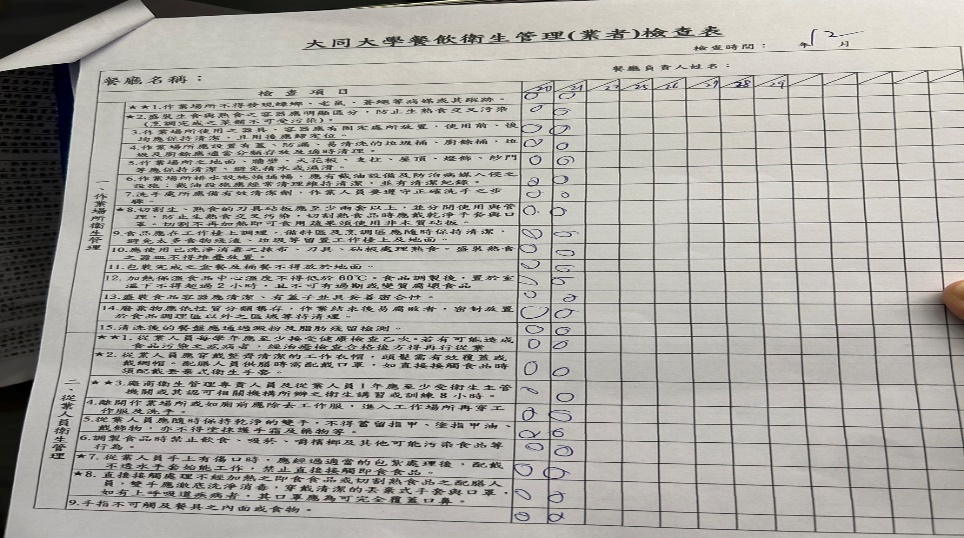 大同大學餐飲衛生管理(業者)檢查表
檢查時間： 年12月
餐廳名稱：
餐廳負責人姓名：
檢查項目 20 21 25 26 28 29
一、作業場所衛生管理
★★1.作業場所不得發現蟑螂、老鼠、蒼蠅等病媒或其蹤跡。
★2.盛裝生食與熟食之容器應明顯區分，防止生熟食交叉污染
(烹調完成之菜餚不可受污染)。
3.作業場所使用之器具、容器應有固定處所放置，使用前、後
均應保持清潔，且用後應歸定位。
4.作業場所應設置有蓋、防漏、易清洗的垃圾桶、廚餘桶，垃
圾及廚餘應適當分類存放及適時清理。
5.作業場所之地面、牆壁、天花板、支柱、屋頂、燈飾、紗門
等應保持清潔、避免積水或濕滑。
6.作業場所排水設施須通暢，應有截油設備及防治病媒入侵之
設施；截油設施應經常清理維持清潔，並有清潔紀錄。
7.洗手處所應備有效清潔劑，作業人員要遵守正確洗手之步
驟。
★8.切割生、熟食的刀具砧板應至少兩套以上，並分開使用與管
理，防止生熟食交叉污染，切割熟食品時應戴乾淨手套與口
罩。切割不再加熱即可食用蔬果須使用非木質砧板。
9.食品應在工作檯上調理，備料區及烹調區應隨時保持清潔，
避免太多食物殘渣、垃圾等留置工作檯上及地面。
10.應使用已洗淨消毒之抹布、刀具、砧板處理熟食。盛裝熟食
之器皿不得堆疊放置。
11.包裝完成之盒餐及桶餐不得放於地面。
12.加熱保溫食品中心溫度不得低於60℃。食品調製後，置於室
溫下不得超過2小時，且不可有過期或變質腐壞食品
13.盛裝食品容器應清潔、有蓋子並具妥善密合性。
14.廢棄物應依性質分類集存，作業結束後易腐敗者，密封放置
於食品調理區以外之區域等待清理。
15.清洗後的餐盤應通過澱粉及脂肪殘留檢測。
二、從業人員衛生管理
★★1.從業人員每學年應至少接受健康檢查乙次。若有可能造成
食品污染之疾病者，經治療檢查合格後方得再行從業
★2.從業人員應穿戴整齊清潔的工作衣帽，頭髮需有效覆蓋或
戴網帽。配膳人員供膳時需配戴口罩，如直接接觸食品時
須配戴丟棄式衛生手套。
★★3.廠商衛生管理專責人員及從業人員1年應至少受衛生主管
機關或其認可相關機構所辦之衛生講習或訓練8小時。
4.離開作業場所或如廁前應除去工作服，進入工作場所再穿工
作服及洗手。
5.從業人員應隨時保持乾淨的雙手，不得蓄留指甲、塗指甲油、
戴飾物，亦不得塗抹護手霜及藥物等。
6.調製食品時禁止飲食、吸菸、嚼檳榔及其他可能污染食品等
行為。
★7.從業人員手上有傷口時，應經過適當的包紮處理後，配戴
不透水手套始能工作，禁止直接接觸即食食品。
★8.直接接觸處理不經加熱之即食食品或切割熟食品之配膳人
員，雙手應徹底洗淨消毒，穿戴清潔的丟棄式手套與口罩，
如有上呼吸道疾病者，其口罩應為可完全覆蓋口鼻。
9.手指不可觸及餐具之內面或食物。